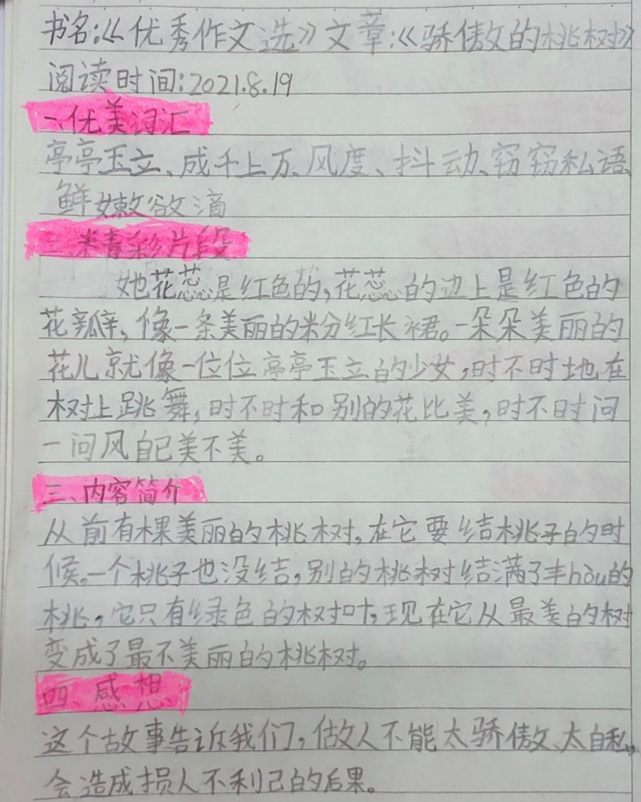 书名:《优秀作文选》文章:《骄傲的桃树》
阅读时间:2021.8.19
一、优美词汇
亭亭玉立、成千上万、风度、抖动、窃窃私语、
鲜嫩欲滴
二、精彩片段
她花蕊是红色的,花蕊的边上是红色的
花瓣,像一条美丽的粉红长裙。一朵朵美丽的
花儿就像一位位亭亭玉立的少女,时不时地在
树上跳舞,时不时和别的花比美,时不时问
一问风自己美不美。
三、内容简介
从前有棵美丽的桃树,在它要结桃子的时
候。一个桃子也没结,别的桃树结满了丰hòu的
桃,它只有绿色的树叶,现在它从最美的树
变成了最不美丽的桃树。
四、感想
这个故事告诉我们,做人不能太骄傲、太自私。
会造成损人不利己的后果。